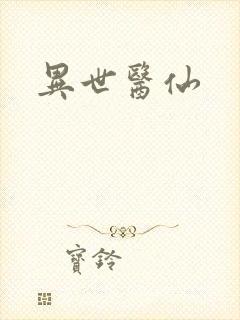 異世醫仙
寶鈴